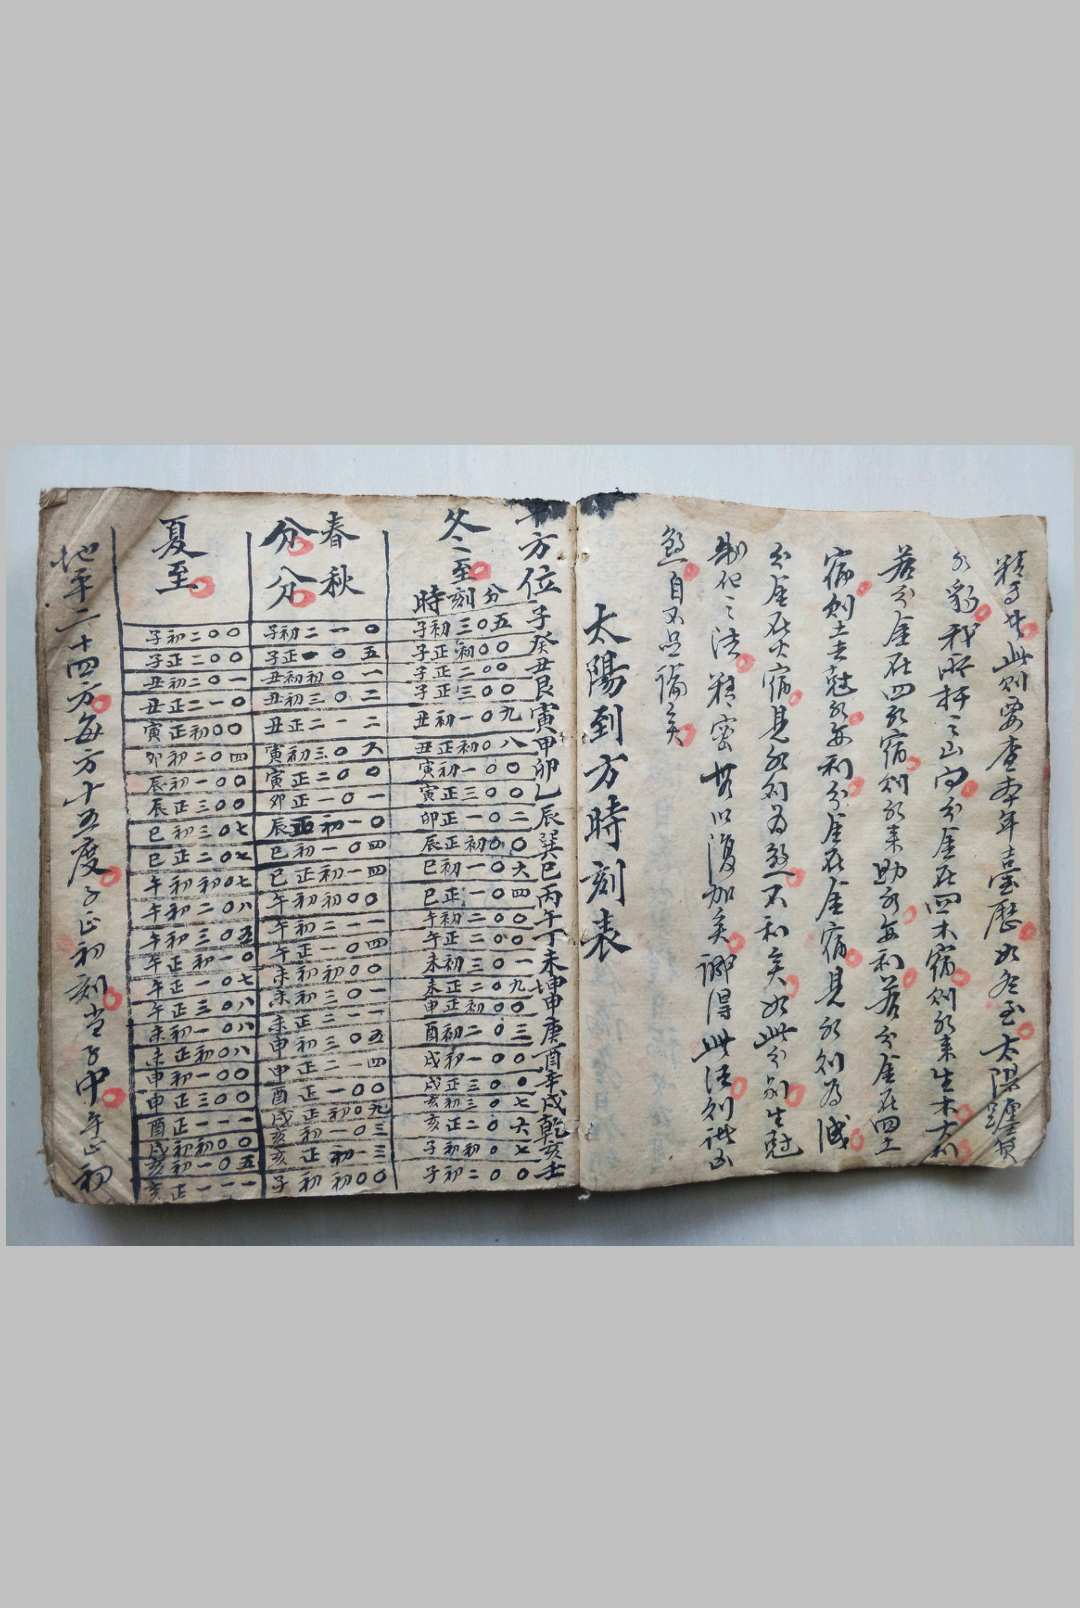 此則要查本年臺歷如冬至太陽躔箕
水豹我所扦之山向分金在四木宿則水来生木大利
若分金在四水宿則水来助水無利若分金在四土
宿則土去尅水無利分金在金宿見水則為洩
分金在火宿見水則為煞不利矣如此分别生尅
制化之法精密無以復加矣得此法則諸凶
煞自不足論矣
太陽到方時刻表
方位
子癸丑艮寅甲卯乙辰巽巳丙午丁未坤申庚酉辛戌乾亥壬
冬至
時刻分
子初三〇五
子正初〇〇
子正二〇〇
子正三〇〇
丑初一〇九
丑正初〇八
寅初一〇〇
寅正三〇〇
卯正一〇二
辰正初〇〇
巳初一〇六
巳正一〇四
午初二〇〇
午正二〇〇
未初三〇一
未正二〇九
申正初〇〇
酉初二〇三
戌初一〇〇
戌正三〇〇
亥初三〇七
亥正二〇六
子初初〇七
子初二〇〇
春分
秋分
子初二一〇
子正一〇五
丑初初〇一
丑初三〇二
丑正二一二
寅初三〇六
寅正二〇〇
卯正一〇一
辰正初一〇
巳初一〇四
巳正初一四
午初初〇〇
午初二一一
午正一〇四
未初初〇〇
未初三〇一
未正三一一
申初三〇五
申正二一四
酉正一〇〇
戌正初〇九
亥初一〇三
亥正初一三
子初初〇〇
夏至
子初二〇〇
子正二〇〇
丑初二〇一
丑正二一〇
寅正初〇〇
卯初二〇四
辰初一〇〇
辰正三〇〇
巳初三〇七
巳正二〇七
午初初〇七
午初二〇八
午初三〇五
午正初一〇
午正一〇七
午正三〇八
未初一〇八
未正初〇八
申初一〇〇
申正三〇〇
酉正一一一
戌初初〇〇
亥初一〇五
亥正一一一
地平二十四方每方十五度子正初刻當子中午正初